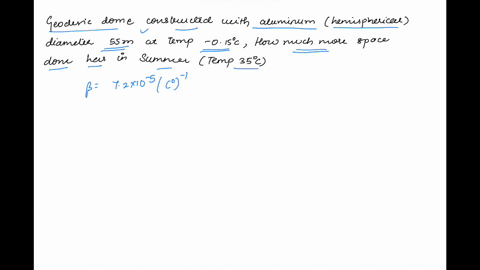 Geodesic dome constructed with aluminum (hemispherical)
diameter 55m at temp -0.15°c, How much more space
dome has in Summer (Temp 35°c)
β = 7.2×10⁻⁵ (C°)⁻¹